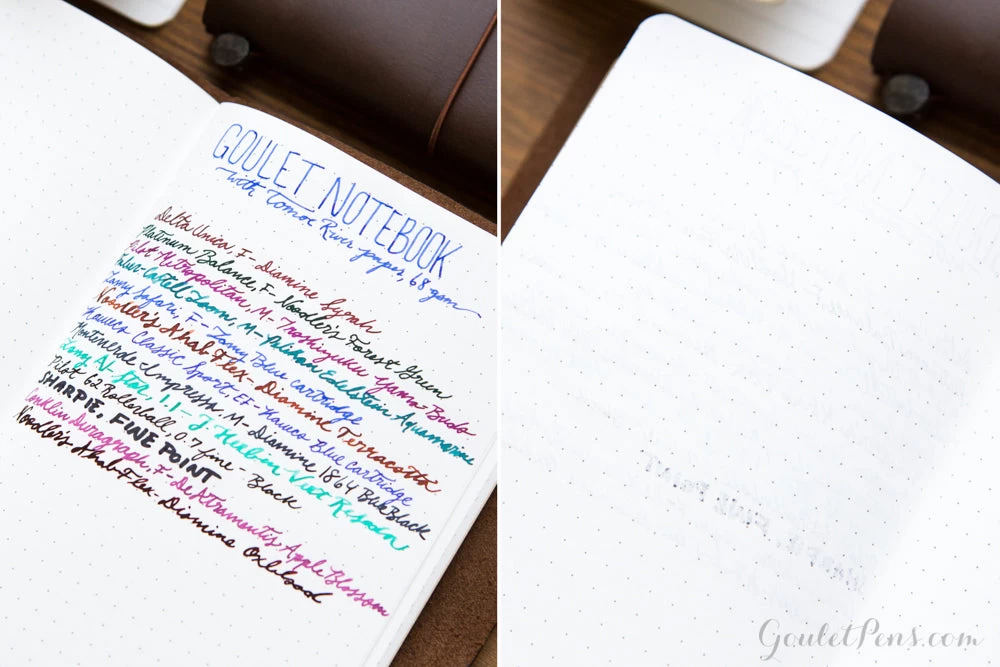 GOULET NOTEBOOK
with Tomoe River paper, 68 gsm
Delta Unica, F- Diamine Syrah
Platinum Balance, F- Noodler's Forest Green
Pilot Metropolitan, M- Iroshizuku Yama-Budo
Faber-Castell Loom, M- Pelikan Edelstein Aquamarine
Lamy Safari, F- Lamy Blue Cartridge
Noodler's Ahab Flex- Diamine Terracotta
Kaweco Classic Sport, EF- Kaweco Blue Cartridge
Monteverde Impressa, M- Diamine 1864 Blue Black
Lamy Al-Star, 1.1- J Herbin Vert Reseda
Pilot G2 Rollerball 0.7 fine- Black
SHARPIE, FINE POINT
Conklin Duragraph, F- De Atramentis Apple Blossom
Noodler's Ahab Flex- Diamine Oxblood
GouletPens.com